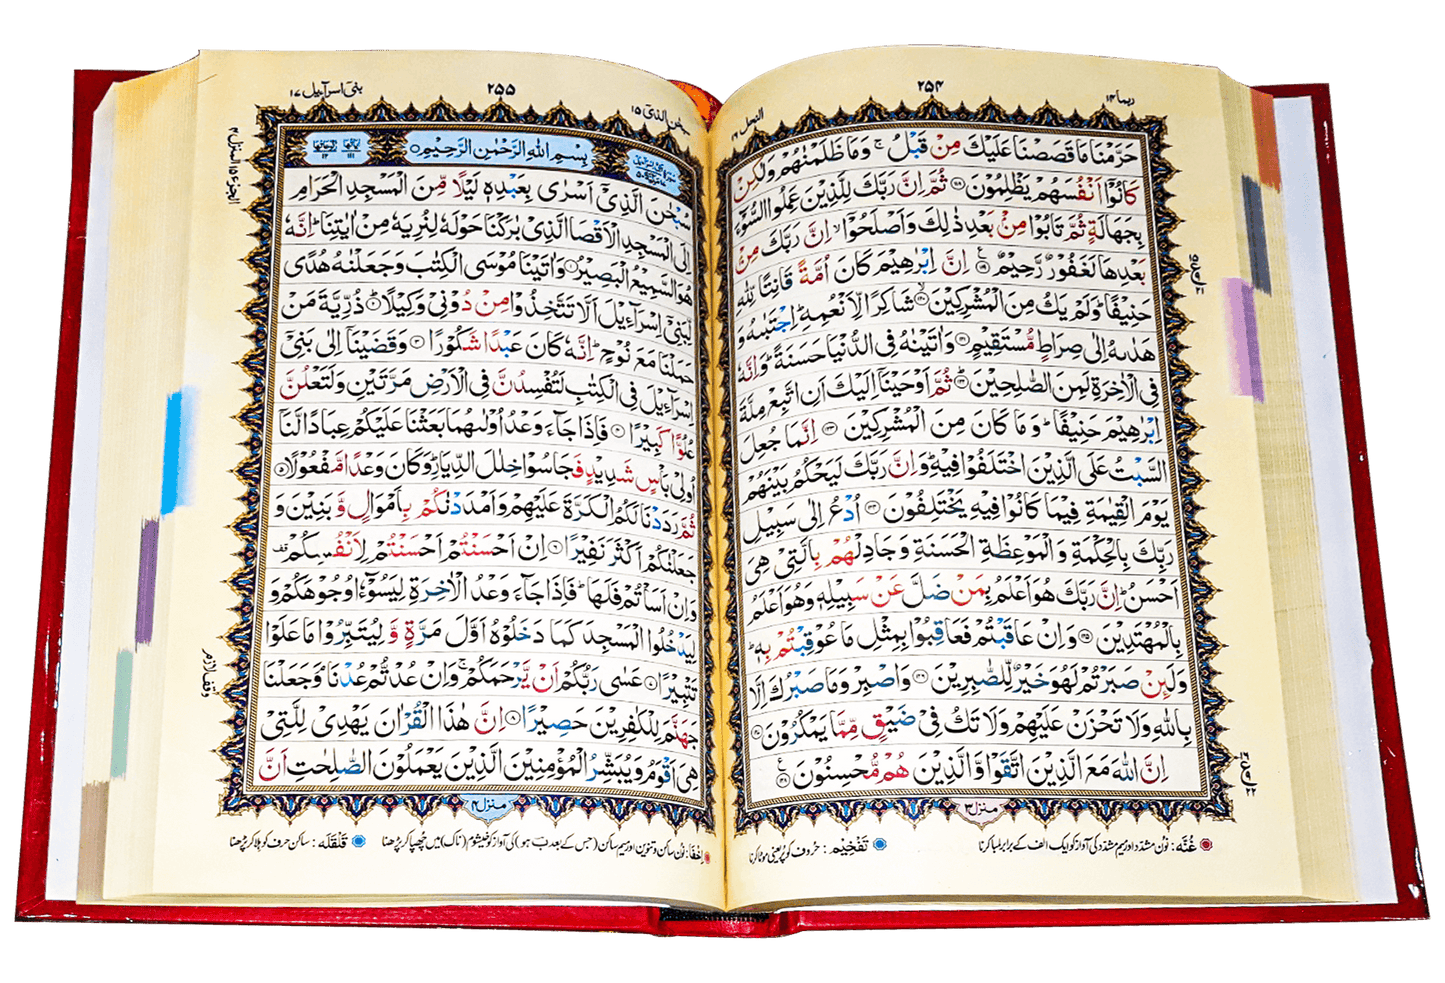 ربما ١٤
٢٥٤
النحل ١٦
حَرَّمْنَا مَا قَصَصْنَا عَلَيْكَ مِنْ قَبْلُ ۚ وَمَا ظَلَمْنٰهُمْ وَلٰكِنْ
كَانُوْۤا اَنْفُسَهُمْ يَظْلِمُوْنَ ﴿۱۱۸﴾ ثُمَّ اِنَّ رَبَّكَ لِلَّذِيْنَ عَمِلُوا السُّوْٓءَ
بِجَهَالَةٍ ثُمَّ تَابُوْا مِنْۢ بَعْدِ ذٰلِكَ وَاَصْلَحُوْۤا ۙ اِنَّ رَبَّكَ مِنْۢ
بَعْدِهَا لَغَفُوْرٌ رَّحِيْمٌ ﴿۱۱۹﴾ اِنَّ اِبْرٰهِيْمَ كَانَ اُمَّةً قَانِتًا لِّلّٰهِ
حَنِيْفًا ؕ وَلَمْ يَكُ مِنَ الْمُشْرِكِيْنَ ﴿۱۲۰﴾ شَاكِرًا لِّاَنْعُمِهٖ ؕ اِجْتَبٰىهُ وَ
هَدٰىهُ اِلٰى صِرَاطٍ مُّسْتَقِيْمٍ ﴿۱۲۱﴾ وَاٰتَيْنٰهُ فِى الدُّنْيَا حَسَنَةً ؕ وَاِنَّهٗ
فِى الْاٰخِرَةِ لَمِنَ الصّٰلِحِيْنَ ﴿۱۲۲﴾ ثُمَّ اَوْحَيْنَاۤ اِلَيْكَ اَنِ اتَّبِعْ مِلَّةَ
اِبْرٰهِيْمَ حَنِيْفًا ؕ وَمَا كَانَ مِنَ الْمُشْرِكِيْنَ ﴿۱۲۳﴾ اِنَّمَا جُعِلَ
السَّبْتُ عَلَى الَّذِيْنَ اخْتَلَفُوْا فِيْهِ ؕ وَاِنَّ رَبَّكَ لَيَحْكُمُ بَيْنَهُمْ
يَوْمَ الْقِيٰمَةِ فِيْمَا كَانُوْا فِيْهِ يَخْتَلِفُوْنَ ﴿۱۲۴﴾ اُدْعُ اِلٰى سَبِيْلِ
رَبِّكَ بِالْحِكْمَةِ وَالْمَوْعِظَةِ الْحَسَنَةِ وَجَادِلْهُمْ بِالَّتِىْ هِىَ
اَحْسَنُ ؕ اِنَّ رَبَّكَ هُوَ اَعْلَمُ بِمَنْ ضَلَّ عَنْ سَبِيْلِهٖ وَهُوَ اَعْلَمُ
بِالْمُهْتَدِيْنَ ﴿۱۲۵﴾ وَاِنْ عَاقَبْتُمْ فَعَاقِبُوْا بِمِثْلِ مَا عُوْقِبْتُمْ بِهٖ ؕ
وَلَئِنْ صَبَرْتُمْ لَهُوَ خَيْرٌ لِّلصّٰبِرِيْنَ ﴿۱۲۶﴾ وَاصْبِرْ وَمَا صَبْرُكَ اِلَّا
بِاللّٰهِ وَلَا تَحْزَنْ عَلَيْهِمْ وَلَا تَكُ فِىْ ضَيْقٍ مِّمَّا يَمْكُرُوْنَ ﴿۱۲۷﴾
اِنَّ اللّٰهَ مَعَ الَّذِيْنَ اتَّقَوْا وَّالَّذِيْنَ هُمْ مُّحْسِنُوْنَ ﴿۱۲۸﴾
منزل ٣
غُنَّه: نون مشدد اور میم مشدد کی آواز کو ایک الف کے برابر لمبا کرنا تَفْخِیْم: حروف کو پُر یعنی موٹا کرنا
سبحٰن الذی ١٥
٢٥٥
بنی اسرآءیل ١٧
بِسْمِ اللّٰهِ الرَّحْمٰنِ الرَّحِيْمِ
سُبْحٰنَ الَّذِىْۤ اَسْرٰى بِعَبْدِهٖ لَيْلًا مِّنَ الْمَسْجِدِ الْحَرَامِ
اِلَى الْمَسْجِدِ الْاَقْصَا الَّذِىْ بٰرَكْنَا حَوْلَهٗ لِنُرِيَهٗ مِنْ اٰيٰتِنَا ؕ اِنَّهٗ
هُوَ السَّمِيْعُ الْبَصِيْرُ ﴿۱﴾ وَاٰتَيْنَا مُوْسَى الْكِتٰبَ وَجَعَلْنٰهُ هُدًى
لِّبَنِىْۤ اِسْرَآءِيْلَ اَلَّا تَتَّخِذُوْا مِنْ دُوْنِىْ وَكِيْلًا ﴿۲﴾ ذُرِّيَّةَ مَنْ
حَمَلْنَا مَعَ نُوْحٍ ؕ اِنَّهٗ كَانَ عَبْدًا شَكُوْرًا ﴿۳﴾ وَقَضَيْنَاۤ اِلٰى بَنِىْۤ
اِسْرَآءِيْلَ فِى الْكِتٰبِ لَتُفْسِدُنَّ فِى الْاَرْضِ مَرَّتَيْنِ وَلَتَعْلُنَّ
عُلُوًّا كَبِيْرًا ﴿۴﴾ فَاِذَا جَآءَ وَعْدُ اُوْلٰىهُمَا بَعَثْنَا عَلَيْكُمْ عِبَادًا لَّنَاۤ
اُولِىْ بَاْسٍ شَدِيْدٍ فَجَاسُوْا خِلٰلَ الدِّيَارِ ؕ وَكَانَ وَعْدًا مَّفْعُوْلًا ﴿۵﴾
ثُمَّ رَدَدْنَا لَكُمُ الْكَرَّةَ عَلَيْهِمْ وَاَمْدَدْنٰكُمْ بِاَمْوَالٍ وَّبَنِيْنَ وَ
جَعَلْنٰكُمْ اَكْثَرَ نَفِيْرًا ﴿۶﴾ اِنْ اَحْسَنْتُمْ اَحْسَنْتُمْ لِاَنْفُسِكُمْ قف
وَاِنْ اَسَاْتُمْ فَلَهَا ؕ فَاِذَا جَآءَ وَعْدُ الْاٰخِرَةِ لِيَسُوْٓءُا وُجُوْهَكُمْ وَ
لِيَدْخُلُوا الْمَسْجِدَ كَمَا دَخَلُوْهُ اَوَّلَ مَرَّةٍ وَّلِيُتَبِّرُوْا مَا عَلَوْا
تَتْبِيْرًا ﴿۷﴾ عَسٰى رَبُّكُمْ اَنْ يَّرْحَمَكُمْ ۚ وَاِنْ عُدْتُّمْ عُدْنَا ۘ وَجَعَلْنَا
جَهَنَّمَ لِلْكٰفِرِيْنَ حَصِيْرًا ﴿۸﴾ اِنَّ هٰذَا الْقُرْاٰنَ يَهْدِىْ لِلَّتِىْ
هِىَ اَقْوَمُ وَيُبَشِّرُ الْمُؤْمِنِيْنَ الَّذِيْنَ يَعْمَلُوْنَ الصّٰلِحٰتِ اَنَّ
وقف لازم
منزل ٤
اِخفا: نون ساکن و تنوین اور میم ساکن (جس کے بعد ب ہو) کی آواز کو خیشوم (ناک) میں چھپا کر پڑھنا قَلْقَلَه: ساکن حرف کو ہلا کر پڑھنا